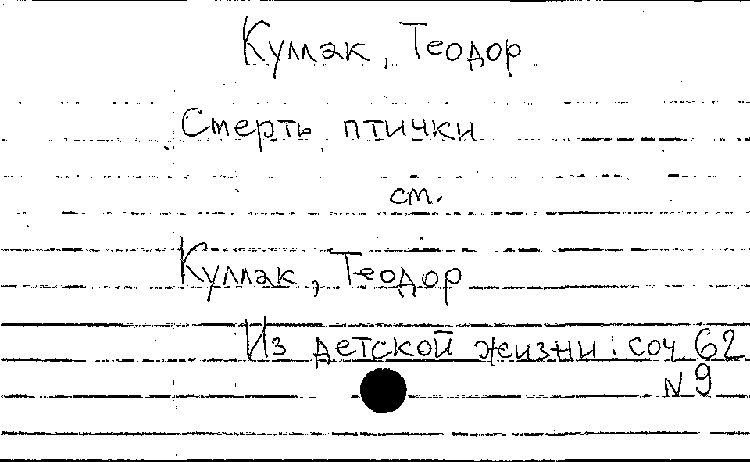 Куллак, Теодор
Смерть птички
см.
Куллак, Теодор
Из детской жизни: соч 62
N 9